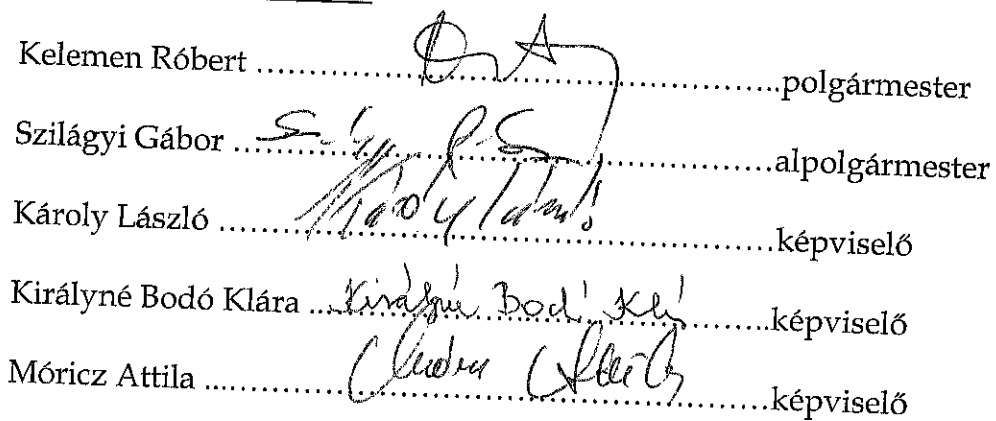 Kelemen Róbert ........................................................polgármester
Szilágyi Gábor ........................................................alpolgármester
Károly László Károly László képviselő
Királyné Bodó Klára Királyné Bodó Klá képviselő
Móricz Attila ........................................................képviselő